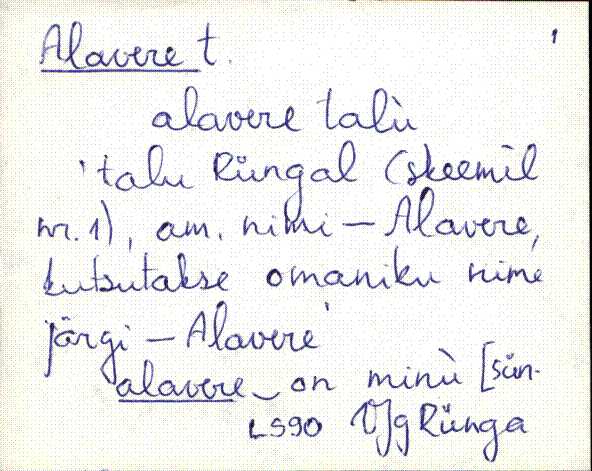 Alavere t. 1
alavere talù
'talu Rüngal (skeemil
nr. 1), am. nimi – Alavere,
kutsutakse omaniku nime
järgi – Alavere'
alavere‿on minù [sün-
LS90 VJg Rünga